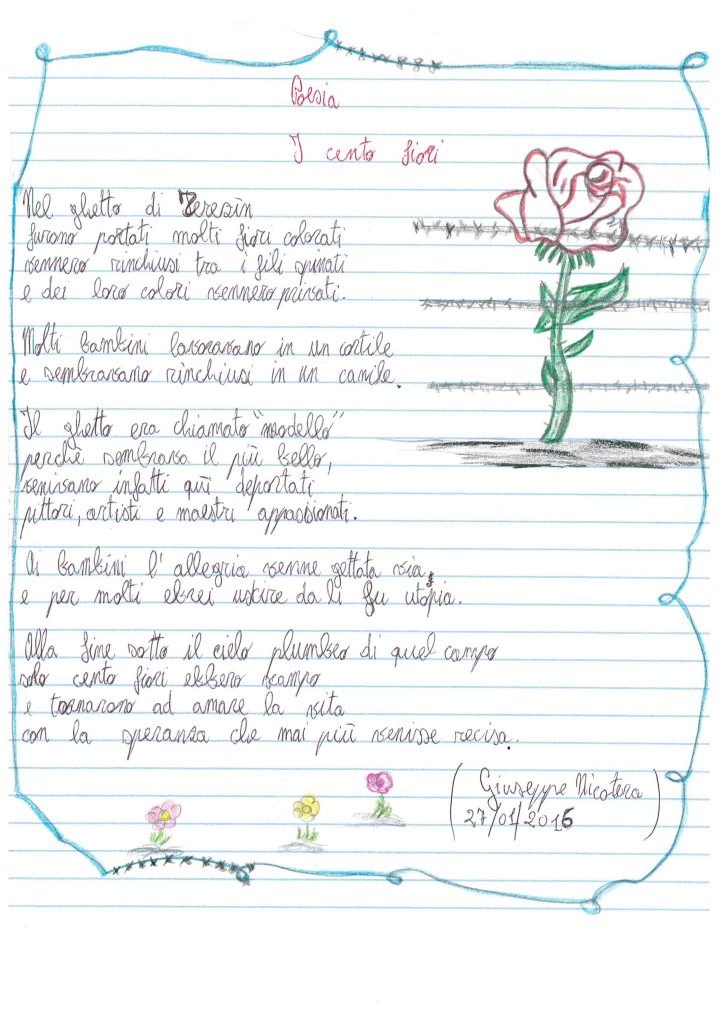 Poesia
I cento fiori
Nel ghetto di Terezin
furono portati molti fiori colorati
vennero rinchiusi tra i fili spinati
e dei loro colori vennero privati.
Molti bambini lavoravano in un cortile
e sembravano rinchiusi in un canile.
Il ghetto era chiamato "modello"
perchè sembrava il più bello,
venivano infatti quì deportati
pittori, artisti e maestri appassionati.
Ai bambini l'allegria venne gettata via,
e per molti ebrei uscire da lì fu utopia.
Alla fine sotto il cielo plumbeo di quel campo
solo cento fiori ebbero scampo
e tornarono ad amare la vita
con la speranza che mai più venisse recisa.
(Giuseppe Nicotera
27/01/2016)